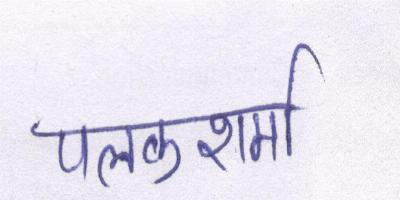 पलक शर्मा